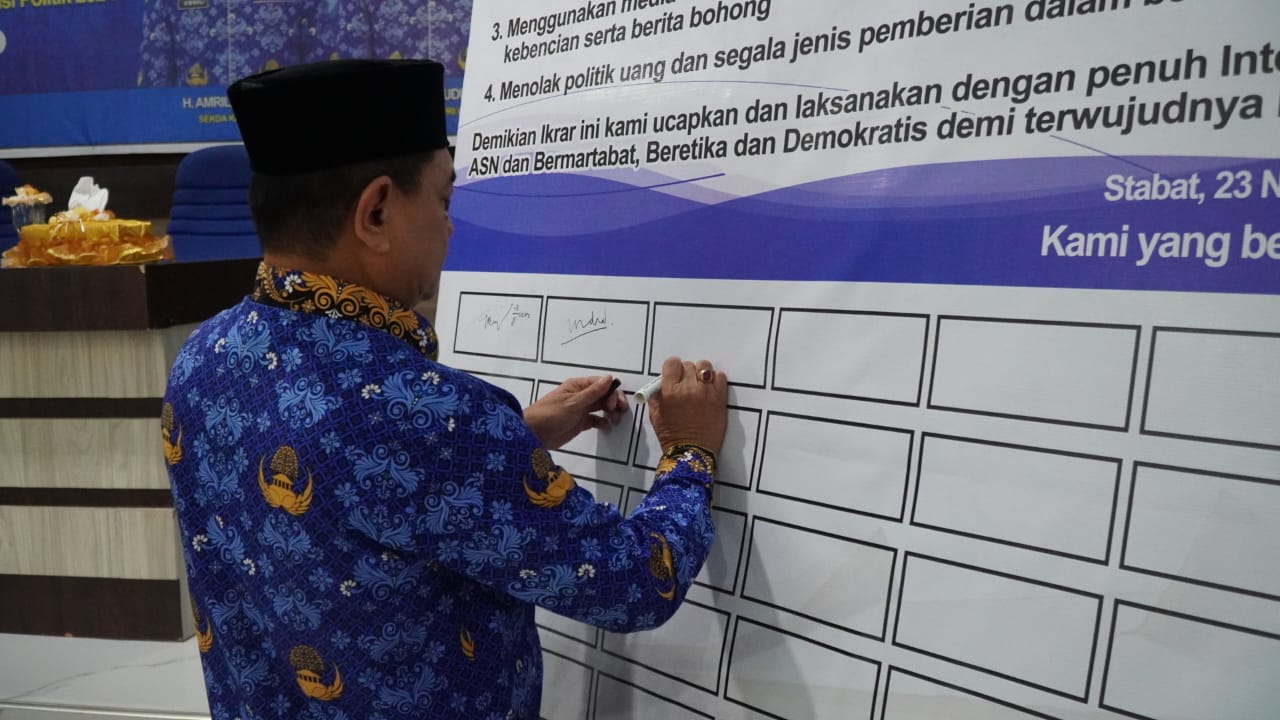 H. AMRIL
SEKDA K
3. Menggunakan media
kebencian serta berita bohong
4. Menolak politik uang dan segala jenis pemberian dalam be
Demikian Ikrar ini kami ucapkan dan laksanakan dengan penuh Inte
ASN dan Bermartabat, Beretika dan Demokratis demi terwujudnya
Stabat, 23 N
Kami yang be